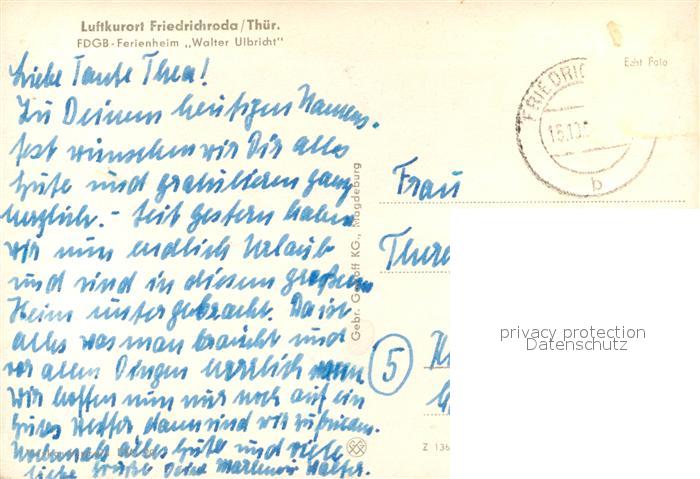 Luftkurort Friedrichroda/Thür.
FDGB-Ferienheim „Walter Ulbricht"
Echt Foto
FRIEDRIC
Liebe Tante Thea!
Zu Deinem heutigen Namens-
fest wünschen wir Dir alles
Gute und gratulieren ganz
herzlich. - Seit gestern haben
wir nun endlich Urlaub
und sind in diesem großen
Heim untergebracht. Da ist
alles was man braucht und
vor allen Dingen herrlich
Wir hoffen nun nur noch auf ein
gutes Wetter dann sind wir zufrieden.
Nochmals alles Gute und viele
liebe Grüße Deine Marlene u. Walter.
Gebr. Garloff KG., Magdeburg
Frau
Thea
5
Z 136
b
privacy protection
Datenschutz